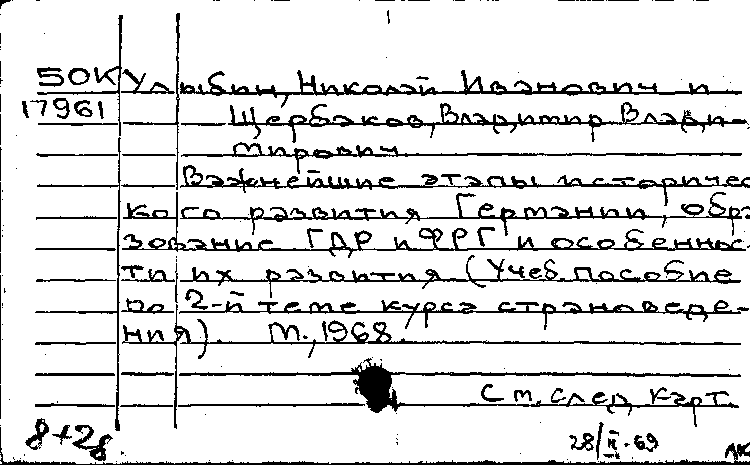 БОК Улыбин, Николай Иванович и
17961 Щербаков, Владимир Влади-
мирович.
Важнейшие этапы историчес-
кого развития Германии, обра-
зование ГДР и ФРГ и особеннос-
ти их развития (Учеб. пособие
по 2-й теме курса страноведе-
ния). М., 1968.
См. след. карт.
8+28 28/II-69